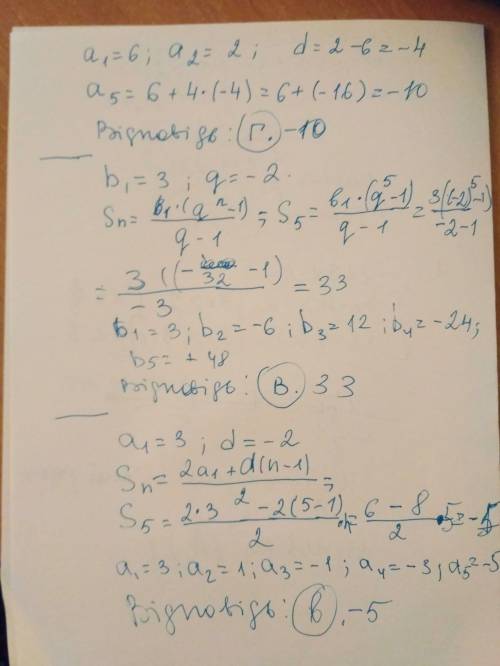 a₁=6; a₂= 2; d= 2-6= -4
a₅= 6+4·(-4)=6+(-16)=-10
Відповідь: Г. -10
b₁=3 ; q=-2.
Sₙ= b₁·(qⁿ-1)/q-1 ; S₅= b₁·(q⁵-1)/q-1 = 3((-2)⁵-1)/-2-1
= 3((-32 -1)/-3 = 33
b₁=3; b₂=-6; b₃=12; b₄=-24;
b₅=+48
Відповідь: В. 33
a₁=3 ; d=-2
Sₙ= 2a₁+d(n-1)/2 ;
S₅= 2·3-2(5-1)/2 ·n= 6-8/2 ·5=-5
a₁=3; a₂=1; a₃=-1; a₄=-3; a₅=-5
Відповідь: В. -5